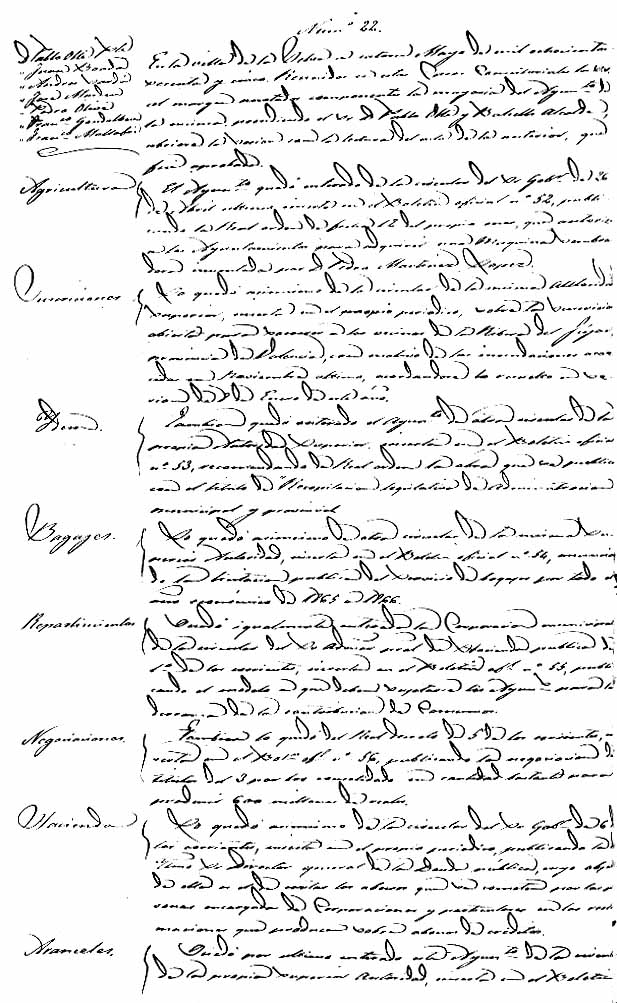 Núm.° 22.
D. Pablo Ollé Plá
" Juan
" Andres
" José
" Pedro Oliva
" Fran.co
" Fran.co
En la villa de la Selva a catorce Mayo de mil ochocientos
sesenta y cinco. Reunidos en estas Casas Consistoriales los SS.
del margen anotados componentes la mayoria del Ayun.to de
la misma presidiendo el Sr. D. Pablo Ollé y Batalla Alcalde,
abriose la sesion con la lectura del acta de la anterior, que
fue aprobada.
Agricultura
El Ayun.to quedó enterado de la circular del Sr. Gob.r de 26
de Abril ultimo, inserta en el Boletin oficial n.° 52, publi-
cando la Real orden de fecha 12 del propio mes, que autoriza
a los Ayuntamientos para adquirir una Maquina sembra-
dora inventada por D. Pedro Martinez Lopez.
Lo quedó asimismo de la circular de la misma Autoridad
superior, inserta en el propio periodico, sobre la suscricion
abierta para socorrer a los vecinos de la Ribera del Júcar
provincia de Valencia, con motivo de las inundaciones acae-
cidas en Noviembre ultimo, acordandose lo resuelto en se-
sion de Enero de este año.
Idem.
Tambien quedó enterado el Ayun.to de otra circular de la
propia Autoridad Superior, inserta en el Boletin oficial
n.° 53, recomendando de Real orden la obra que se publica
con el titulo de "Recopilacion legislativa de Administracion
municipal y provincial.
Bagajes.
Lo quedó asimismo de otra circular de la misma Su-
perior Autoridad, inserta en el Boletin oficial n.° 54, anuncian-
do la licitacion publica del servicio de bagajes por todo el
año económico de 1865 a 1866.
Repartimientos
Quedó igualmente enterada la Corporacion municipal
de la circular del Sr. Admor. pral. de Hacienda publica de
1.° de los corrientes, inserta en el Boletin of.l n.° 55, publi-
cando el modelo a que deben sujetarse los Ayun.tos para la
de la contribucion de Consumos.
Negociaciones.
Tambien lo quedó del Real decreto de 5 de los corrientes, in-
serto en el Bol.n of.l n.° 56, publicando la negociacion de
titulos del 3 por 100 consolidado en cantidad bastante para
producir 600 millones de reales.
Hacienda
Lo quedó asimismo de la circular del Sr. Gob.r de 6 de
los corrientes, inserta en el propio periodico, publicando la del
Iltmo. Sr. Director general de la Deuda pública, cuyo objeto
de ella es el de evitar los abusos que se cometen por las per-
sonas encargadas de Corporaciones y particulares en las recla-
maciones que producen sobre abonos de creditos.
Aranceles.
Quedó por ultimo enterado este Ayun.to de la circular
de la propia superior Autoridad, inserta en el Boletin